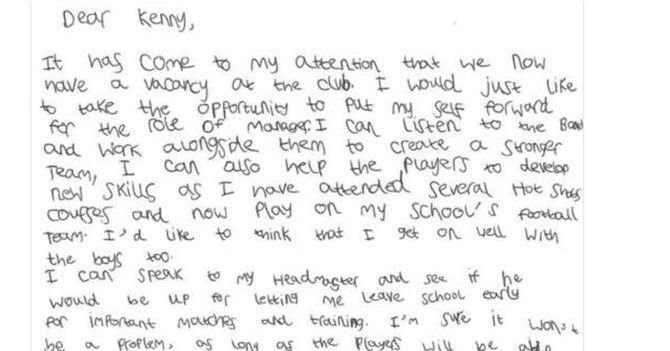 Dear Kenny,
It has come to my attention that we now
have a vacancy at the club. I would just like
to take the opportunity to put my self forward
for the role of Manager. I can listen to the Board
and work alongside them to create a stronger
Team, I can also help the players to develop
new skills as I have attended several Hot Shots
courses and now play on my school's football
team. I'd like to think that I get on well with
the boys too.
I can speak to my Headmaster and see if he
would be up for letting me leave school early
for important matches and training. I'm sure it won't
be a problem, as long as the players will be able